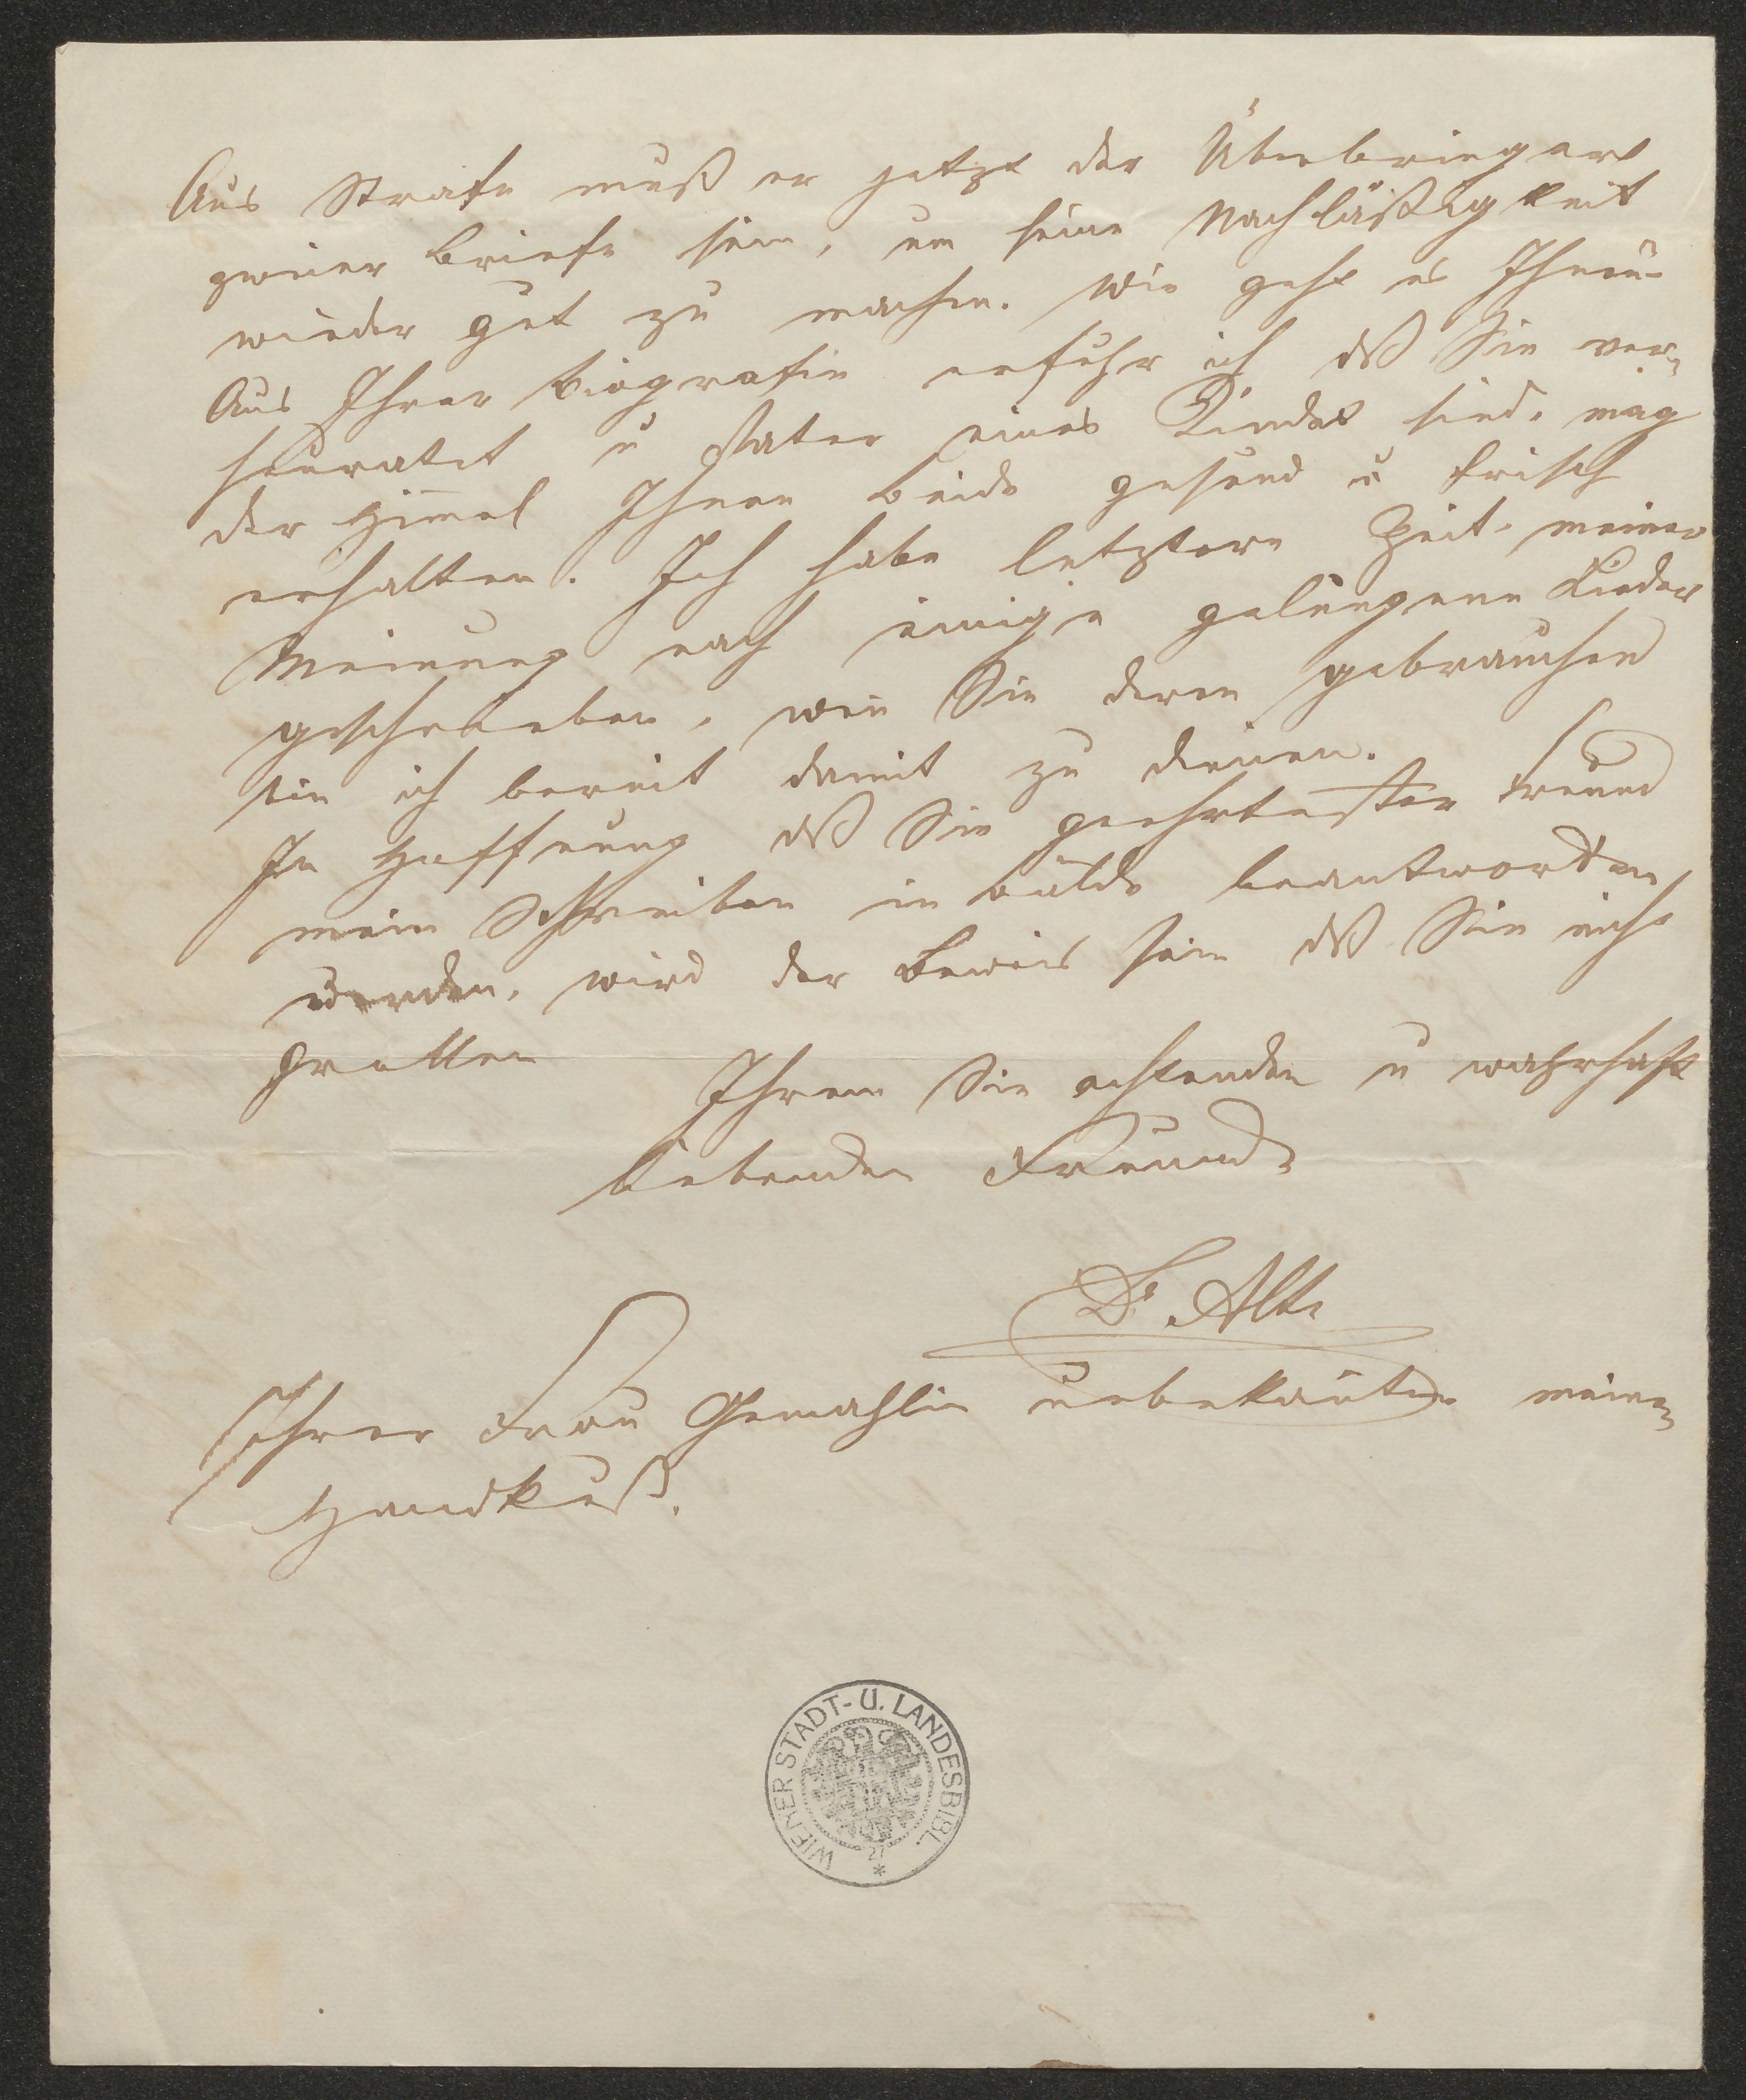 Aus Strafe muß er jetzt der Überbringer
zweier Briefe sein, um seine Nachläßigkeit
wieder gut zu machen. Wie geht es Ihnen –
Aus Ihrer Biografie erfuhr ich dß Sie ver-
heuratet u Vater eines Kindes sind. mag
der Him̄el Ihnen beide gesund u frisch
erhalten. Ich habe letztere Zeit meiner
Meinung nach einige gelungene Lieder
geschrieben, wen̄ Sie deren gebrauchen
bin ich bereit damit zu dienen.
In Hoffnung dß Sie geehrtester Freund
mein Schreiben in bälde beantworten
werden, wird der Beweis sein dß Sie nicht
grollen
Ihrem Sie achtenden u wahrhaft
liebenden Freunde
Alt
Ihrer Frau Gemahlin unbekan̄ter meinen
Handkuß.
WIENER STADT- U. LANDESBIBL.